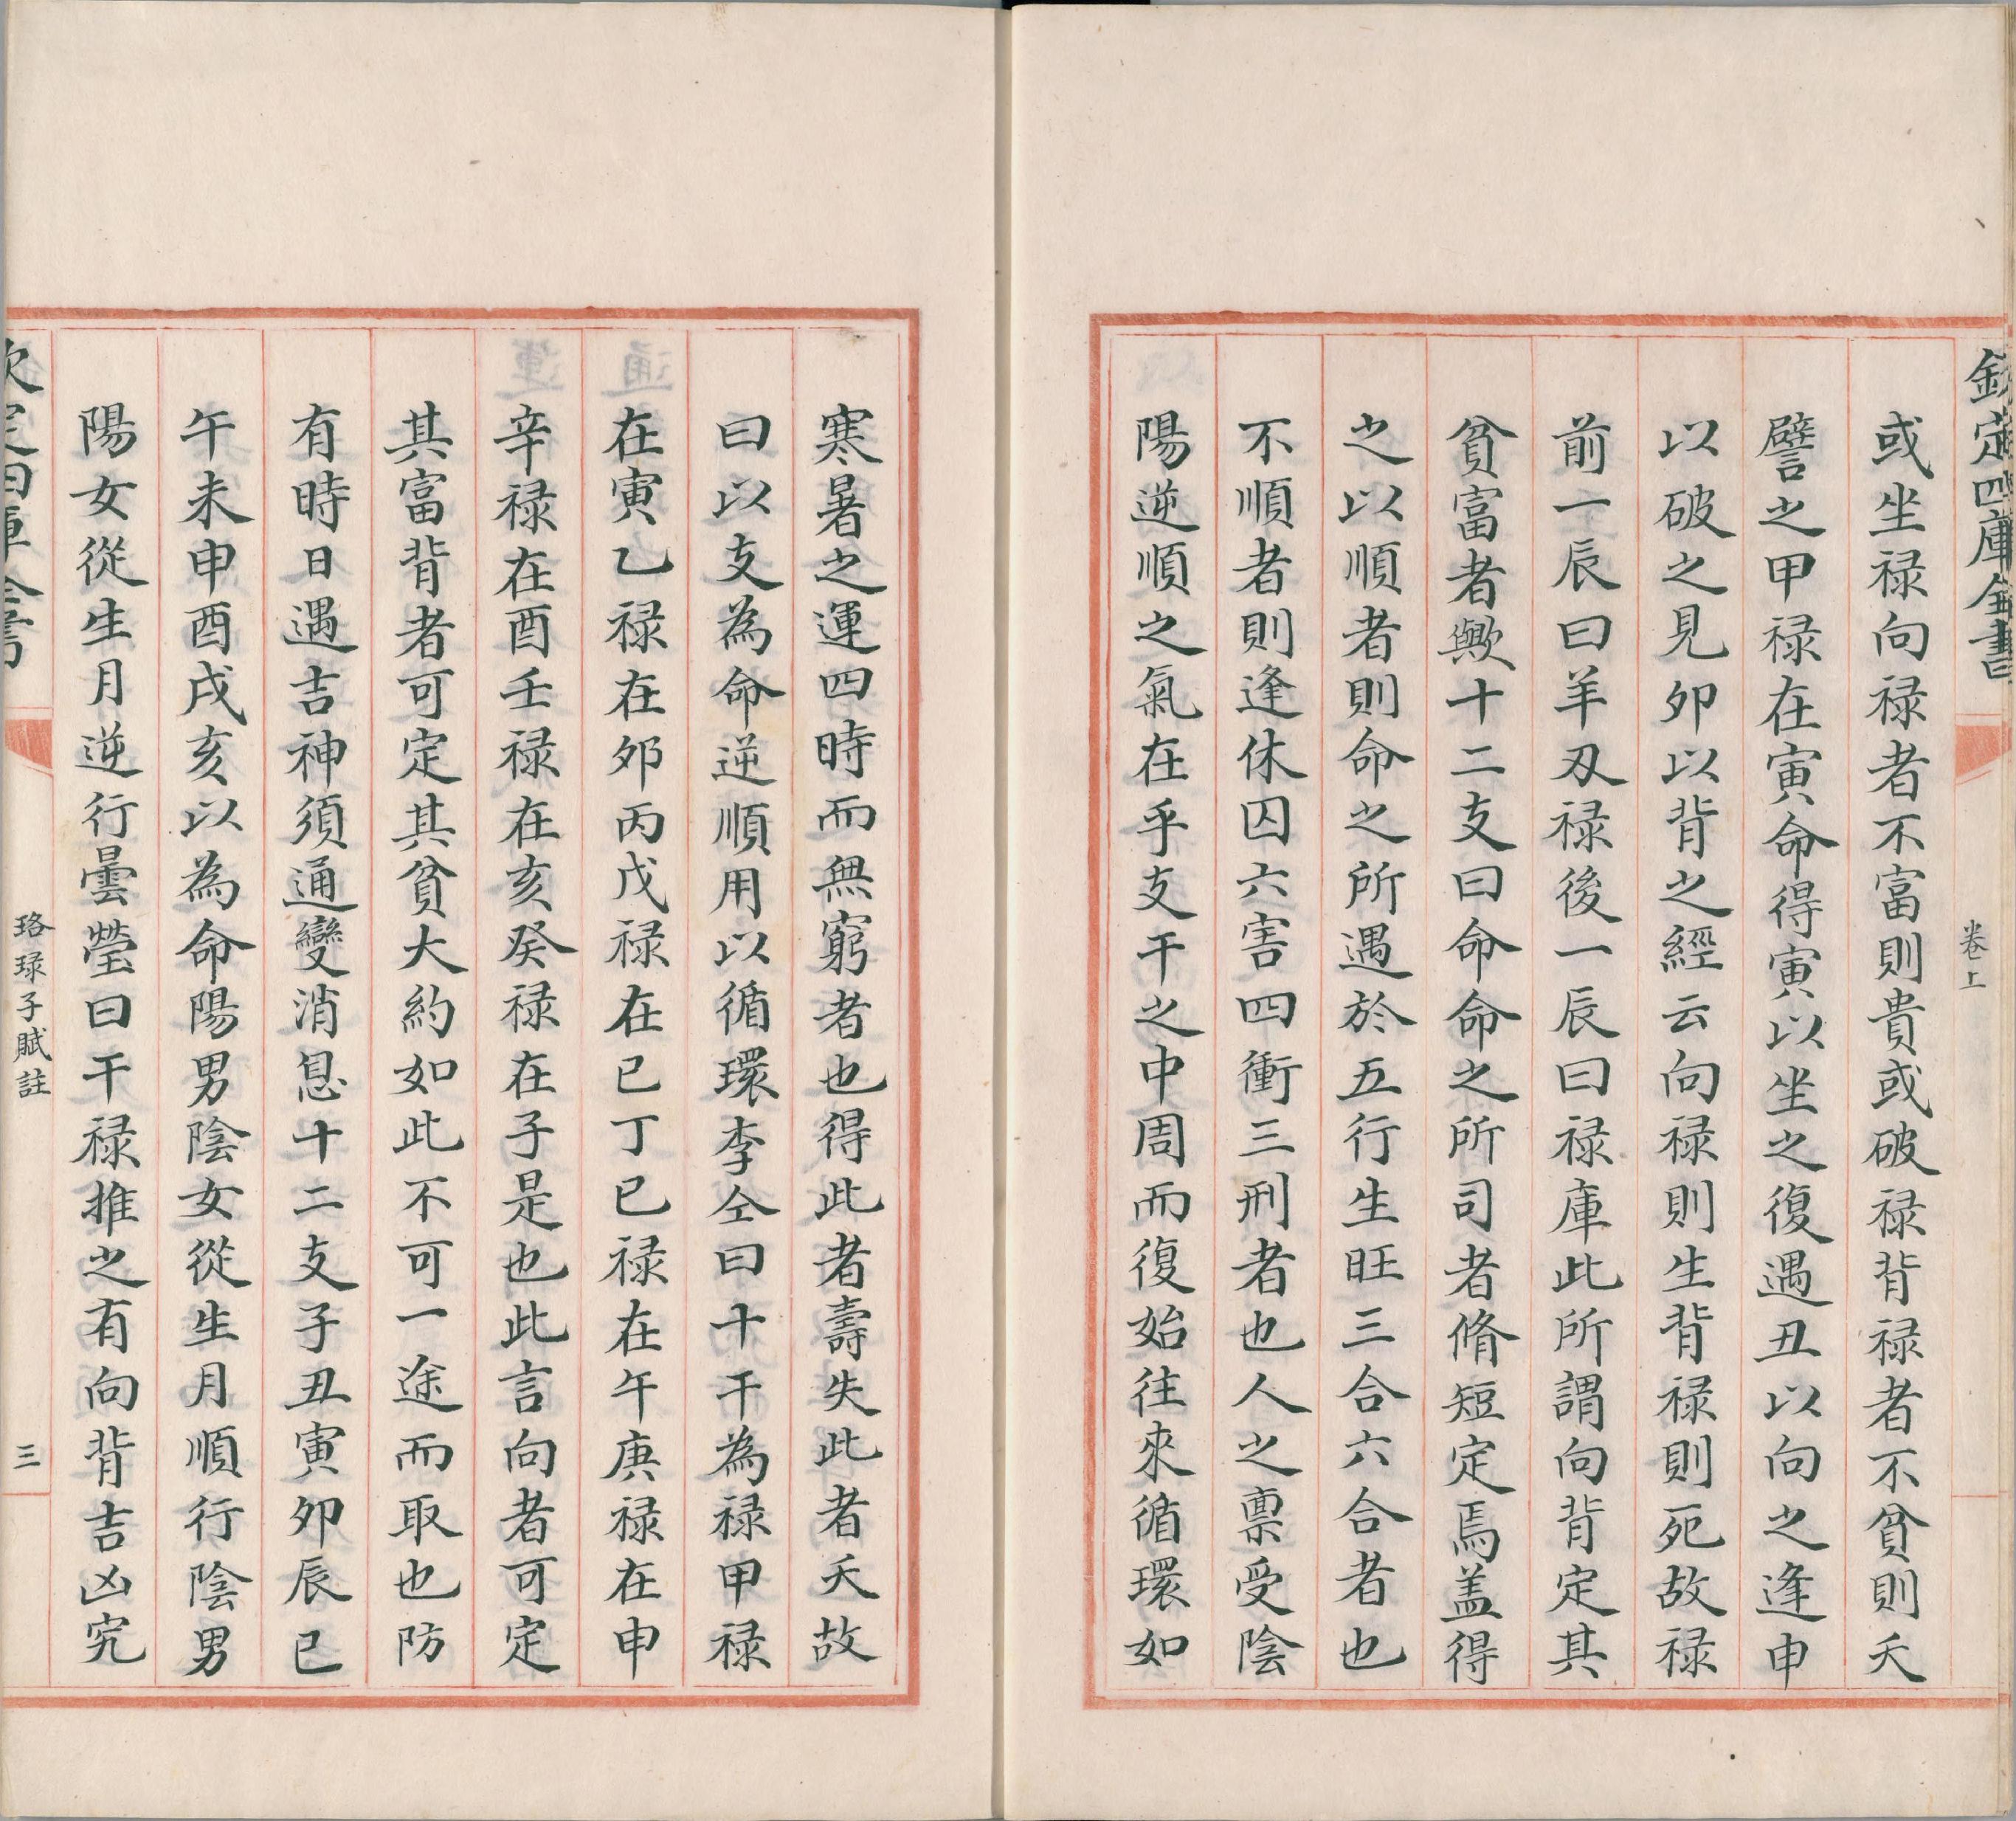 欽定四庫全書
卷上
或坐禄向禄者不富則貴或破禄背禄者不貧則夭
譬之甲禄在寅命得寅以坐之復遇丑以向之逢申
以破之見夘以背之經云向禄則生背禄則死故禄
前一辰曰羊刃禄後一辰曰禄庫此所謂向背定其
貧富者歟十二支曰命命之所司者脩短定焉盖得
之以順者則命之所遇於五行生旺三合六合者也
不順者則逢休囚六害四衝三刑者也人之禀受陰
陽逆順之氣在乎支干之中周而復始往來循環如
寒暑之運四時而無窮者也得此者壽失此者夭故
曰以支為命逆順用以循環李仝曰十干為禄甲禄
在寅乙禄在夘丙戊禄在已丁巳禄在午庚禄在申
辛禄在酉壬禄在亥癸禄在子是也此言向者可定
其富背者可定其貧大約如此不可一途而取也防
有時日遇吉神須通變消息十二支子丑寅夘辰已
午未申酉戌亥以為命陽男陰女從生月順行陰男
陽女從生月逆行曇瑩曰干禄推之有向背吉凶究
欽定四庫全書
珞琭子賦註
三